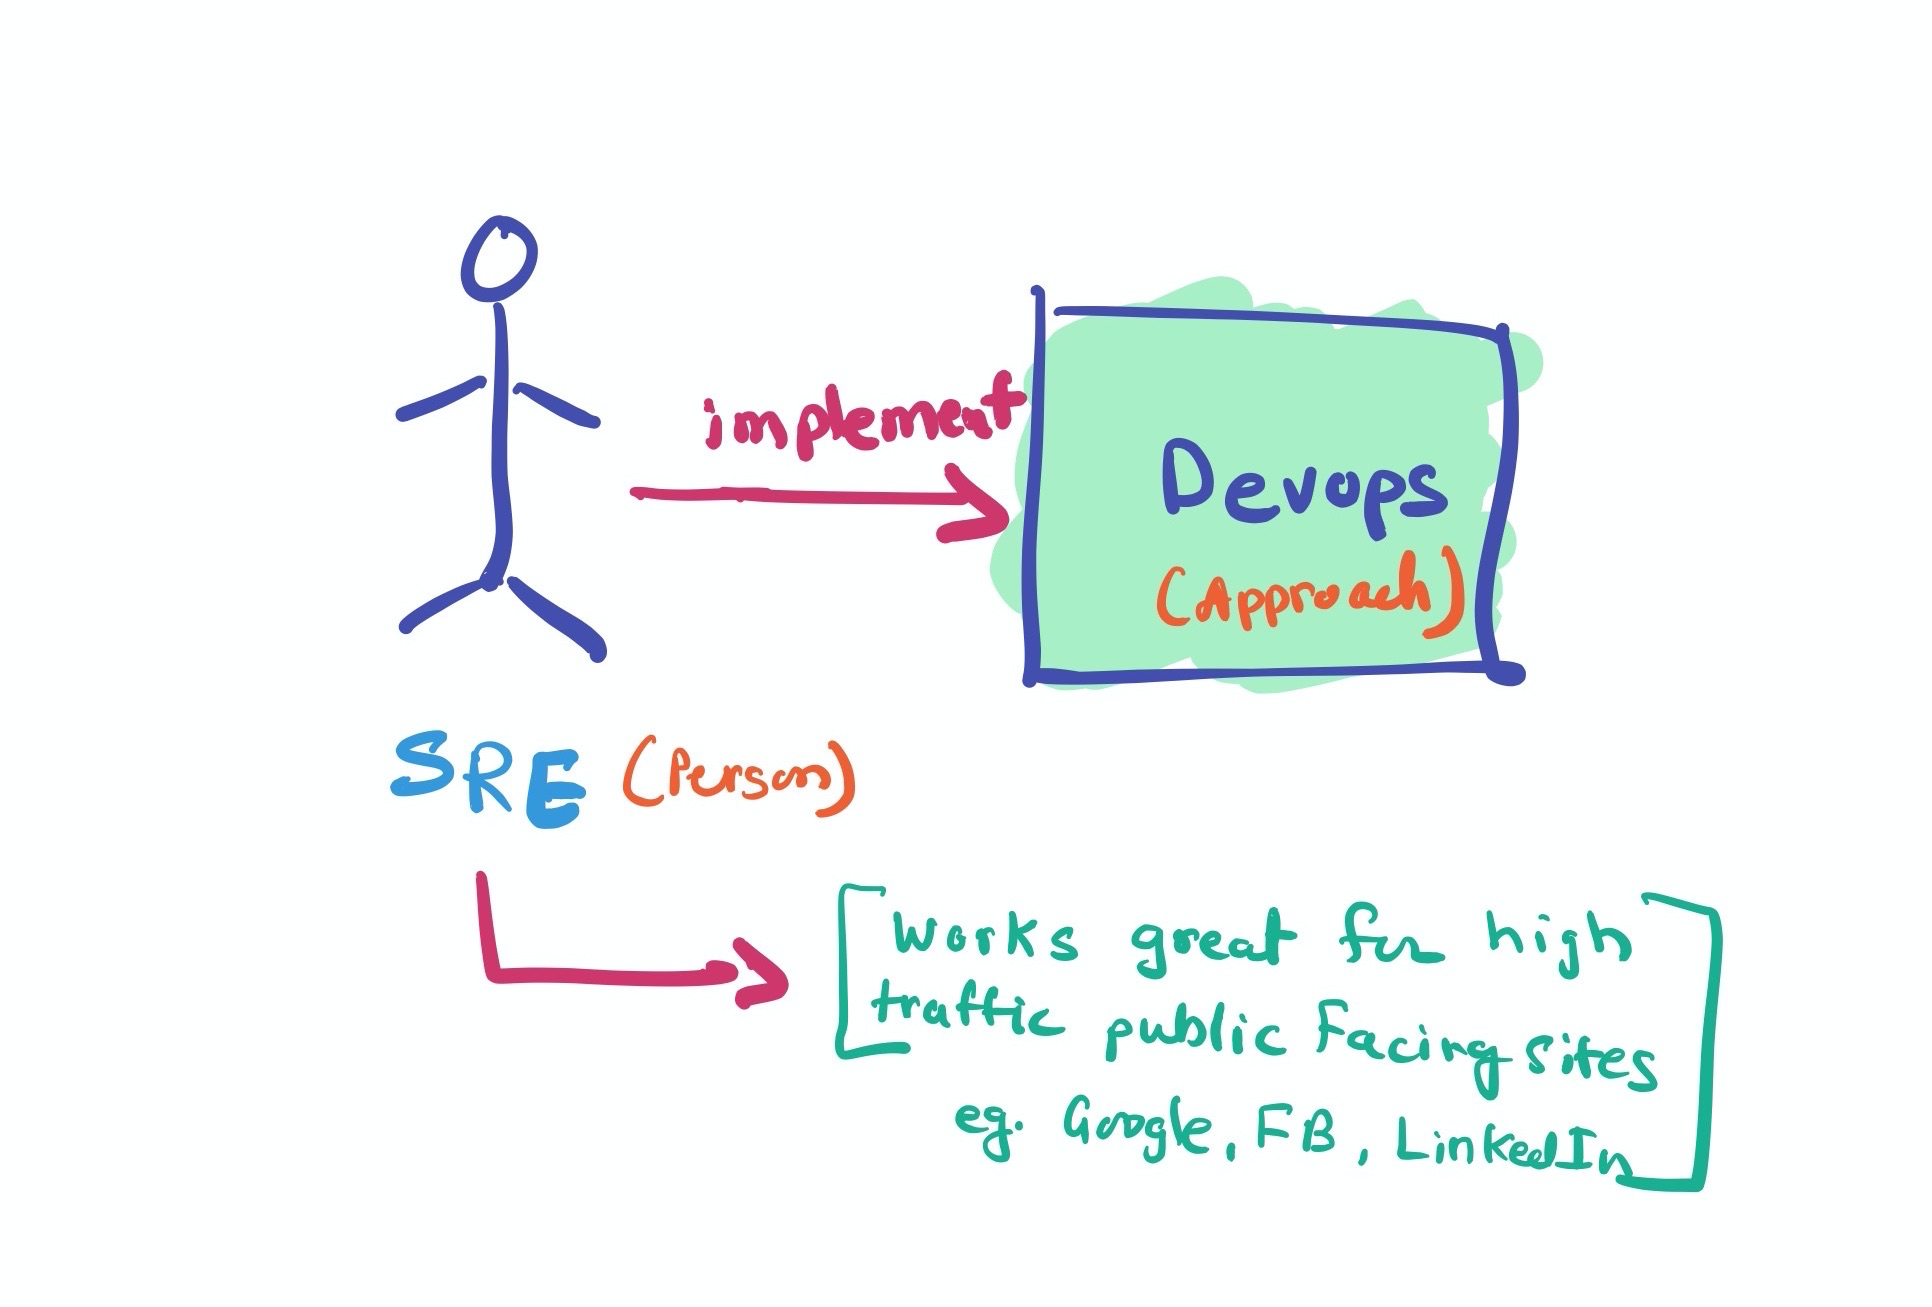 implement
Devops
(Approach)
SRE (Person)
Works great for high
traffic public Facing sites
eg. Google, FB, LinkedIn